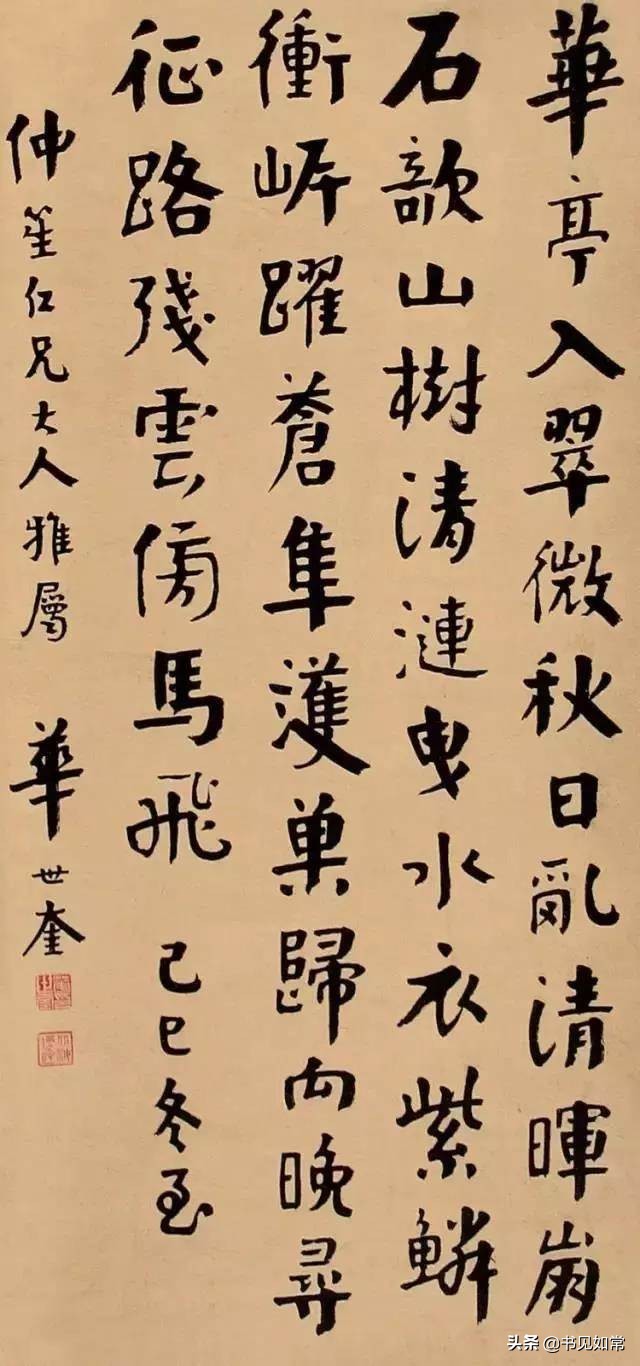 華亭入翠微秋日亂清暉崩
石欹山樹清漣曳水衣紫鱗
衝岸躍蒼隼護巢歸向晚尋
征路殘雲傍馬飛 己巳冬至
仲笙仁兄大人雅屬 華世奎
头条 @书见如常